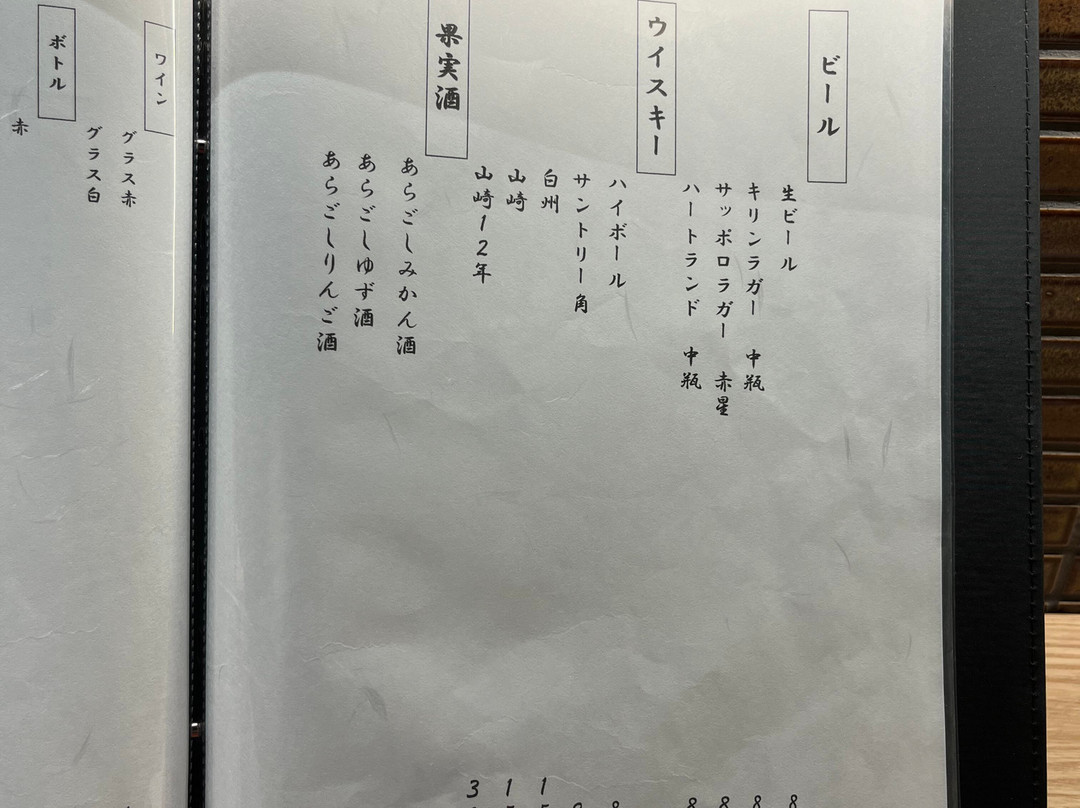 ビール
生ビール
キリンラガー 中瓶
サッポロラガー 赤星
ハートランド 中瓶
ウイスキー
ハイボール
サントリー角
白州
山崎
山崎12年
果実酒
あらごしみかん酒
あらごしゆず酒
あらごしりんご酒
ワイン
グラス赤
グラス白
ボトル
赤